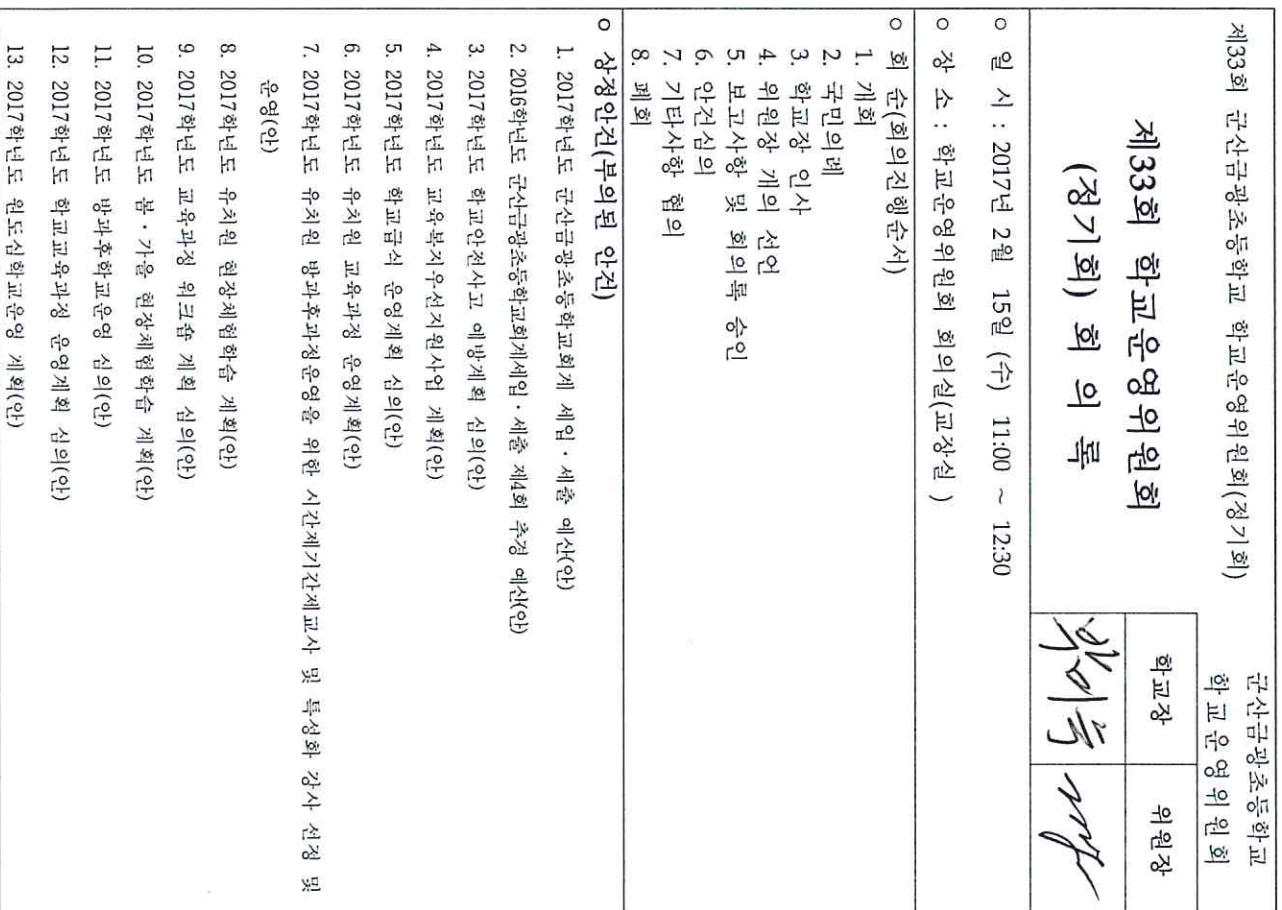 제33회 군산금광초등학교 학교운영위원회(정기회)
군산금광초등학교
학교운영위원회
제33회 학교운영위원회
(정기회) 회 의 록
학교장
위원장
○ 일 시 : 2017년 2월 15일 (수) 11:00 ~ 12:30
○ 장 소 : 학교운영위원회 회의실(교장실 )
○ 회 순(회의진행순서)
1. 개회
2. 국민의례
3. 학교장 인사
4. 위원장 개의 선언
5. 보고사항 및 회의록 승인
6. 안건심의
7. 기타사항 협의
8. 폐회
○ 상정안건(부의된 안건)
1. 2017학년도 군산금광초등학교회계 세입·세출 예산(안)
2. 2016학년도 군산금광초등학교회계세입·세출 제4회 추경 예산(안)
3. 2017학년도 학교안전사고 예방계획 심의(안)
4. 2017학년도 교육복지우선지원사업 계획(안)
5. 2017학년도 학교급식 운영계획 심의(안)
6. 2017학년도 유치원 교육과정 운영계획(안)
7. 2017학년도 유치원 방과후과정운영을 위한 시간제기간제교사 및 특성화 강사 선정 및
운영(안)
8. 2017학년도 유치원 현장체험학습 계획(안)
9. 2017학년도 교육과정 워크숍 계획 심의(안)
10. 2017학년도 봄·가을 현장체험학습 계획(안)
11. 2017학년도 방과후학교운영 심의(안)
12. 2017학년도 학교교육과정 운영계획 심의(안)
13. 2017학년도 원도심학교운영 계획(안)